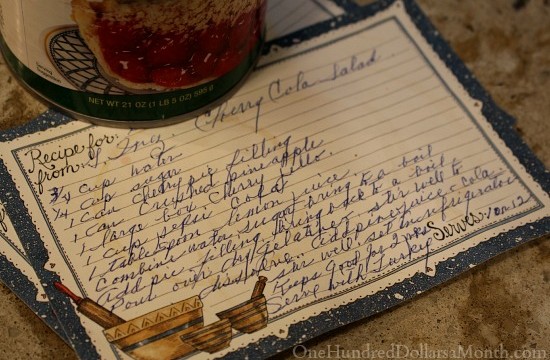 NET WT 21 OZ (1 LB 5 OZ) 595 g
Recipe for: Cherry Cola Salad
from:
3/4 cup water
3/4 cup sugar
1 can cherry pie filling
1 can crushed pineapple
1 large box cherry
1 cup Pepsi cola
1 tablespoon lemon juice.
Combine water, sugar bring to a boil
Add pie filling bring back to a boil.
Pour over dry gelatin, stir well to
dissolve. Add pineapple juice - cola
stir well, set in refrigerator
Keeps Good for 2 wks. Serves: 10 or 12
Serve with Turkey
OneHundredDollarsaMonth.com